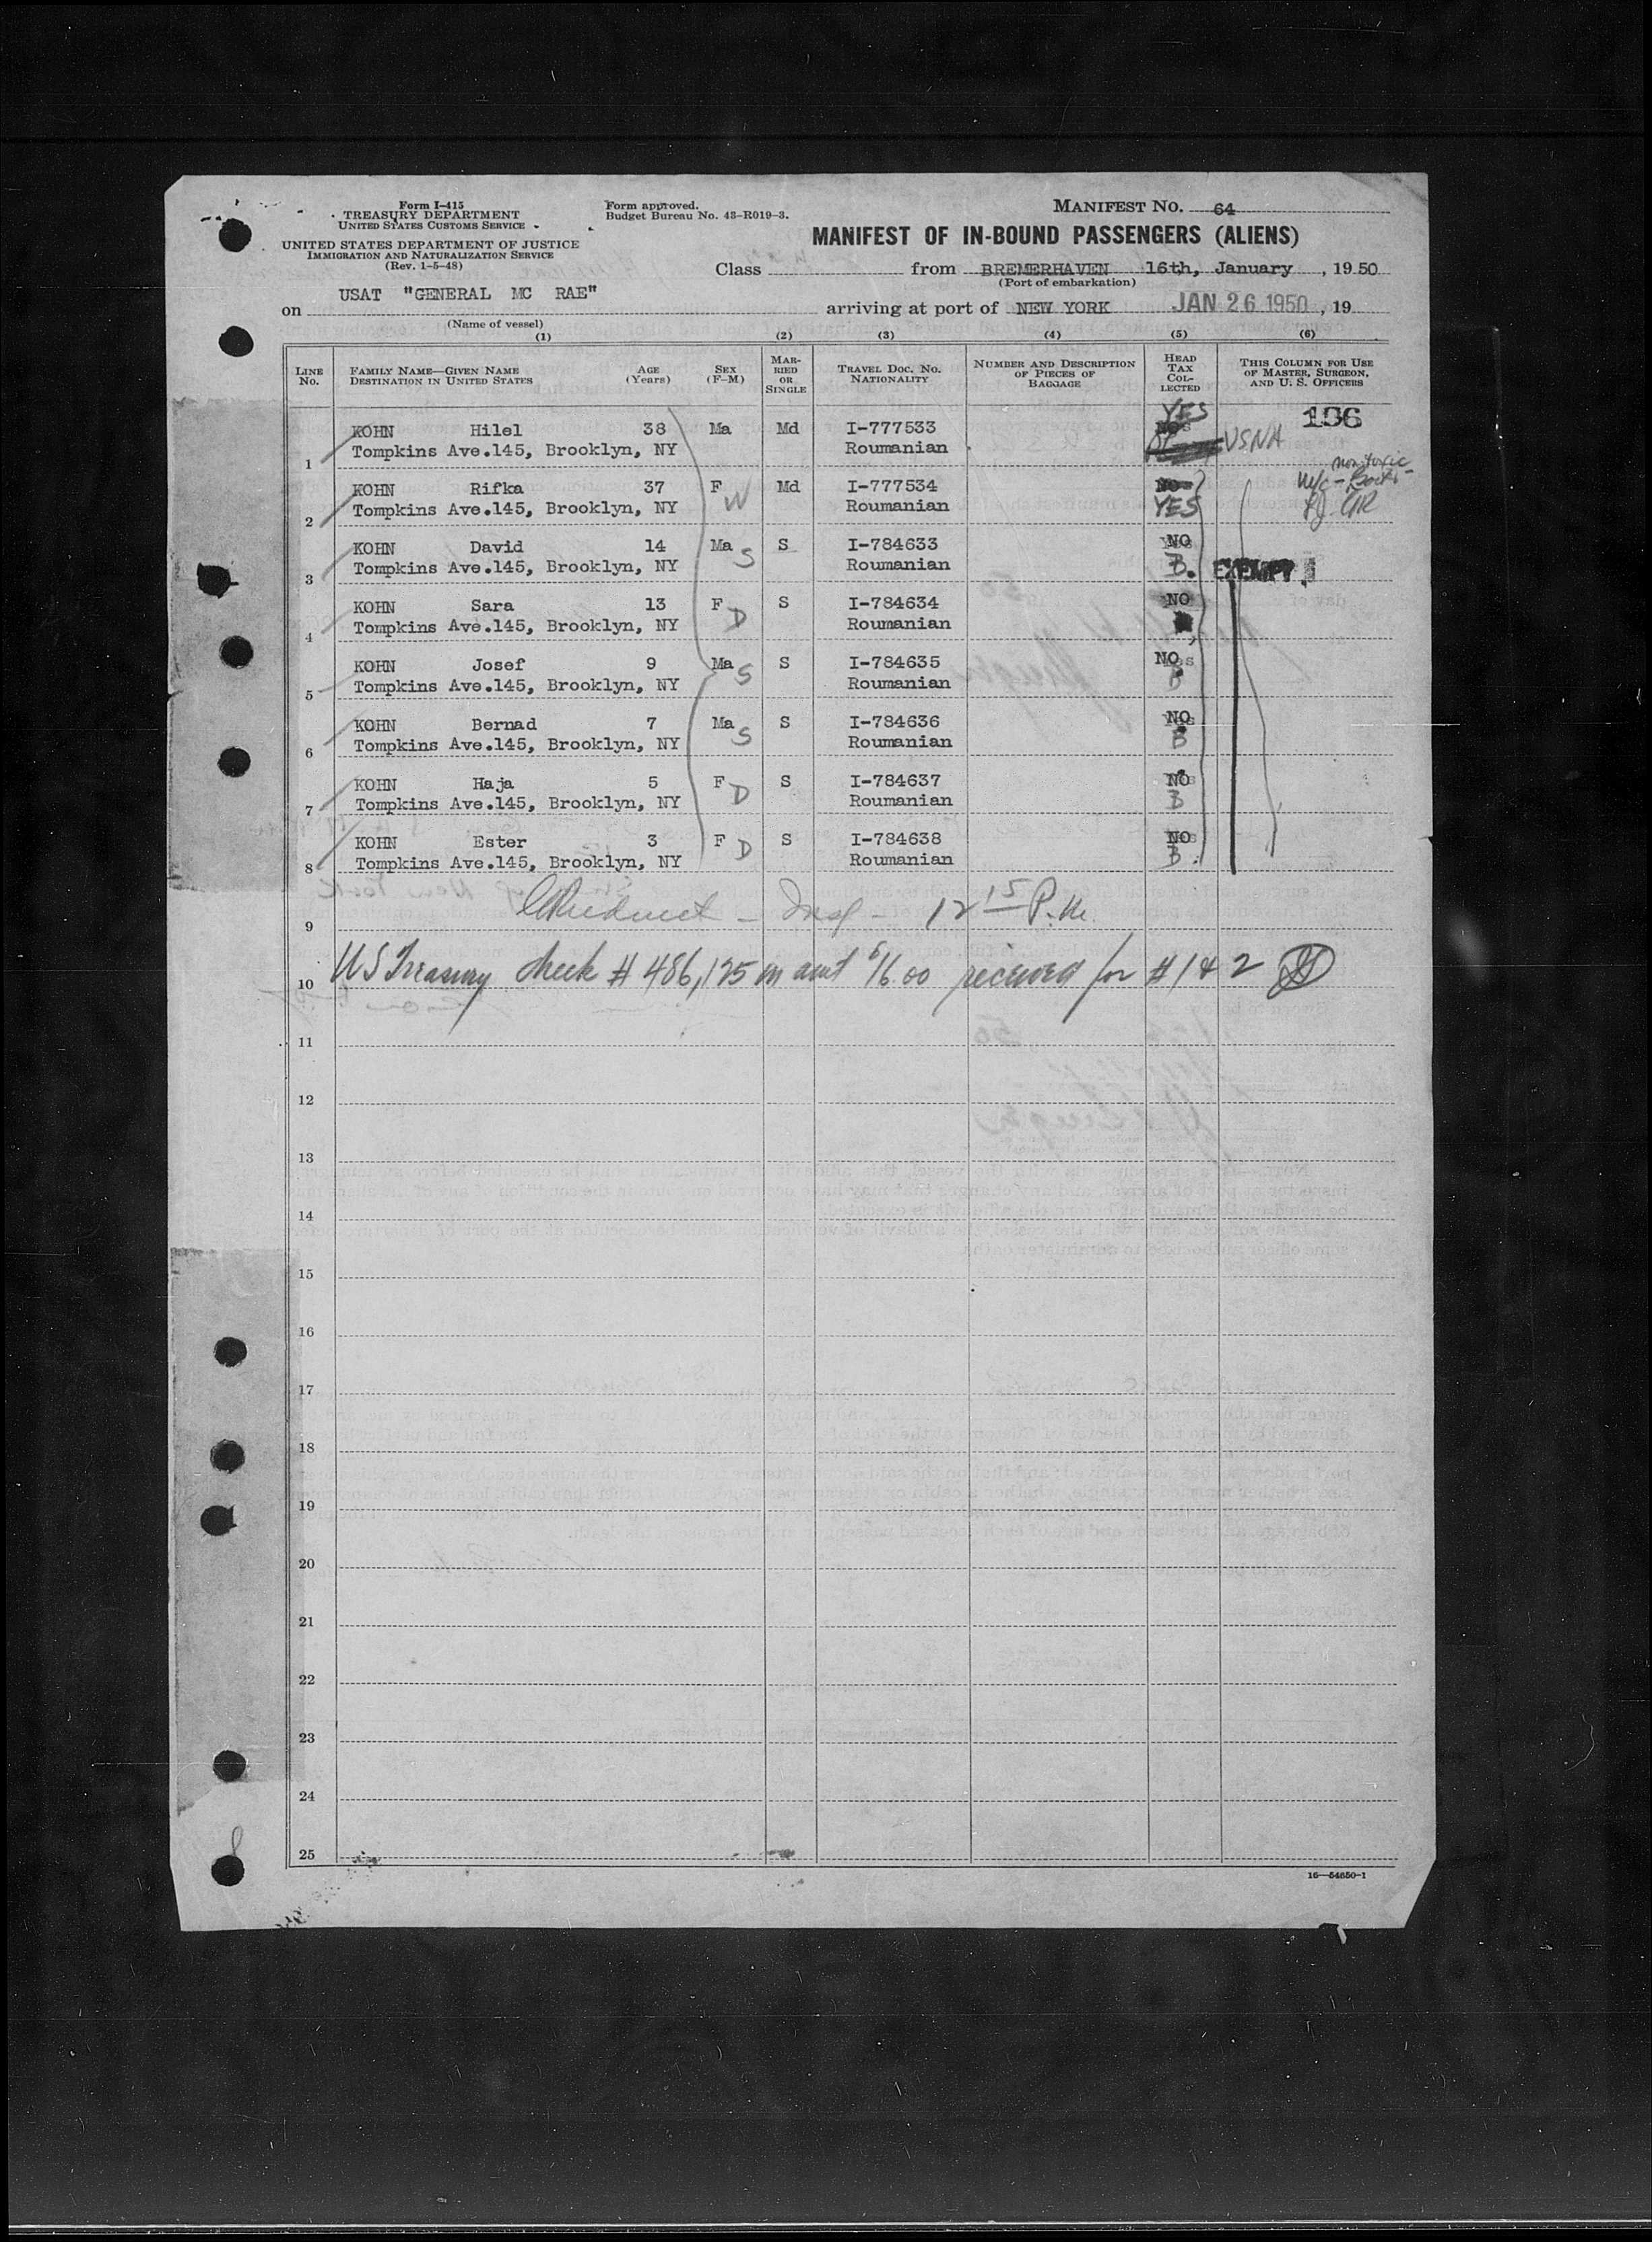 Form I-415
TREASURY DEPARTMENT
UNITED STATES CUSTOMS SERVICE
UNITED STATES DEPARTMENT OF JUSTICE
IMMIGRATION AND NATURALIZATION SERVICE
(Rev. 1-5-48)
Form approved.
Budget Bureau No. 43-R019-3.
MANIFEST NO. 64
MANIFEST OF IN-BOUND PASSENGERS (ALIENS)
Class from BREMERHAVEN 16th, January , 19 50
(Port of embarkation)
on USAT "GENERAL MC RAE" arriving at port of NEW YORK JAN 26 1950 , 19
(Name of vessel)
(1) (2) (3) (4) (5) (6)
LINE No. FAMILY NAME—GIVEN NAME DESTINATION IN UNITED STATES AGE (Years) SEX (F-M) MARRIED OR SINGLE TRAVEL DOC. NO. NATIONALITY NUMBER AND DESCRIPTION OF PIECES OF BAGGAGE HEAD TAX COLLECTED THIS COLUMN FOR USE OF MASTER, SURGEON, AND U. S. OFFICERS
YES 196
KOHN Hilel 38 Ma Md I-777533
1 Tompkins Ave.145, Brooklyn, NY Roumanian USNA
KOHN Rifka 37 F W Md I-777534 non toxic
2 Tompkins Ave.145, Brooklyn, NY Roumanian YES
KOHN David 14 Ma S S I-784633 NO
3 Tompkins Ave.145, Brooklyn, NY Roumanian B. EXEMPT
KOHN Sara 13 F D S I-784634 NO
4 Tompkins Ave.145, Brooklyn, NY Roumanian
KOHN Josef 9 Ma S S I-784635 NO
5 Tompkins Ave.145, Brooklyn, NY Roumanian B
KOHN Bernad 7 Ma S S I-784636 NO
6 Tompkins Ave.145, Brooklyn, NY Roumanian B
KOHN Haja 5 F D S I-784637 NO
7 Tompkins Ave.145, Brooklyn, NY Roumanian B
KOHN Ester 3 F D S I-784638 NO
8 Tompkins Ave.145, Brooklyn, NY Roumanian B.
9 Insp - 12 15 P.M.
10 US Treasury check # 486,125 in amt $16.00 received for #1 & 2
11
12
13
14
15
16
17
18
19
20
21
22
23
24
25
16—54650-1